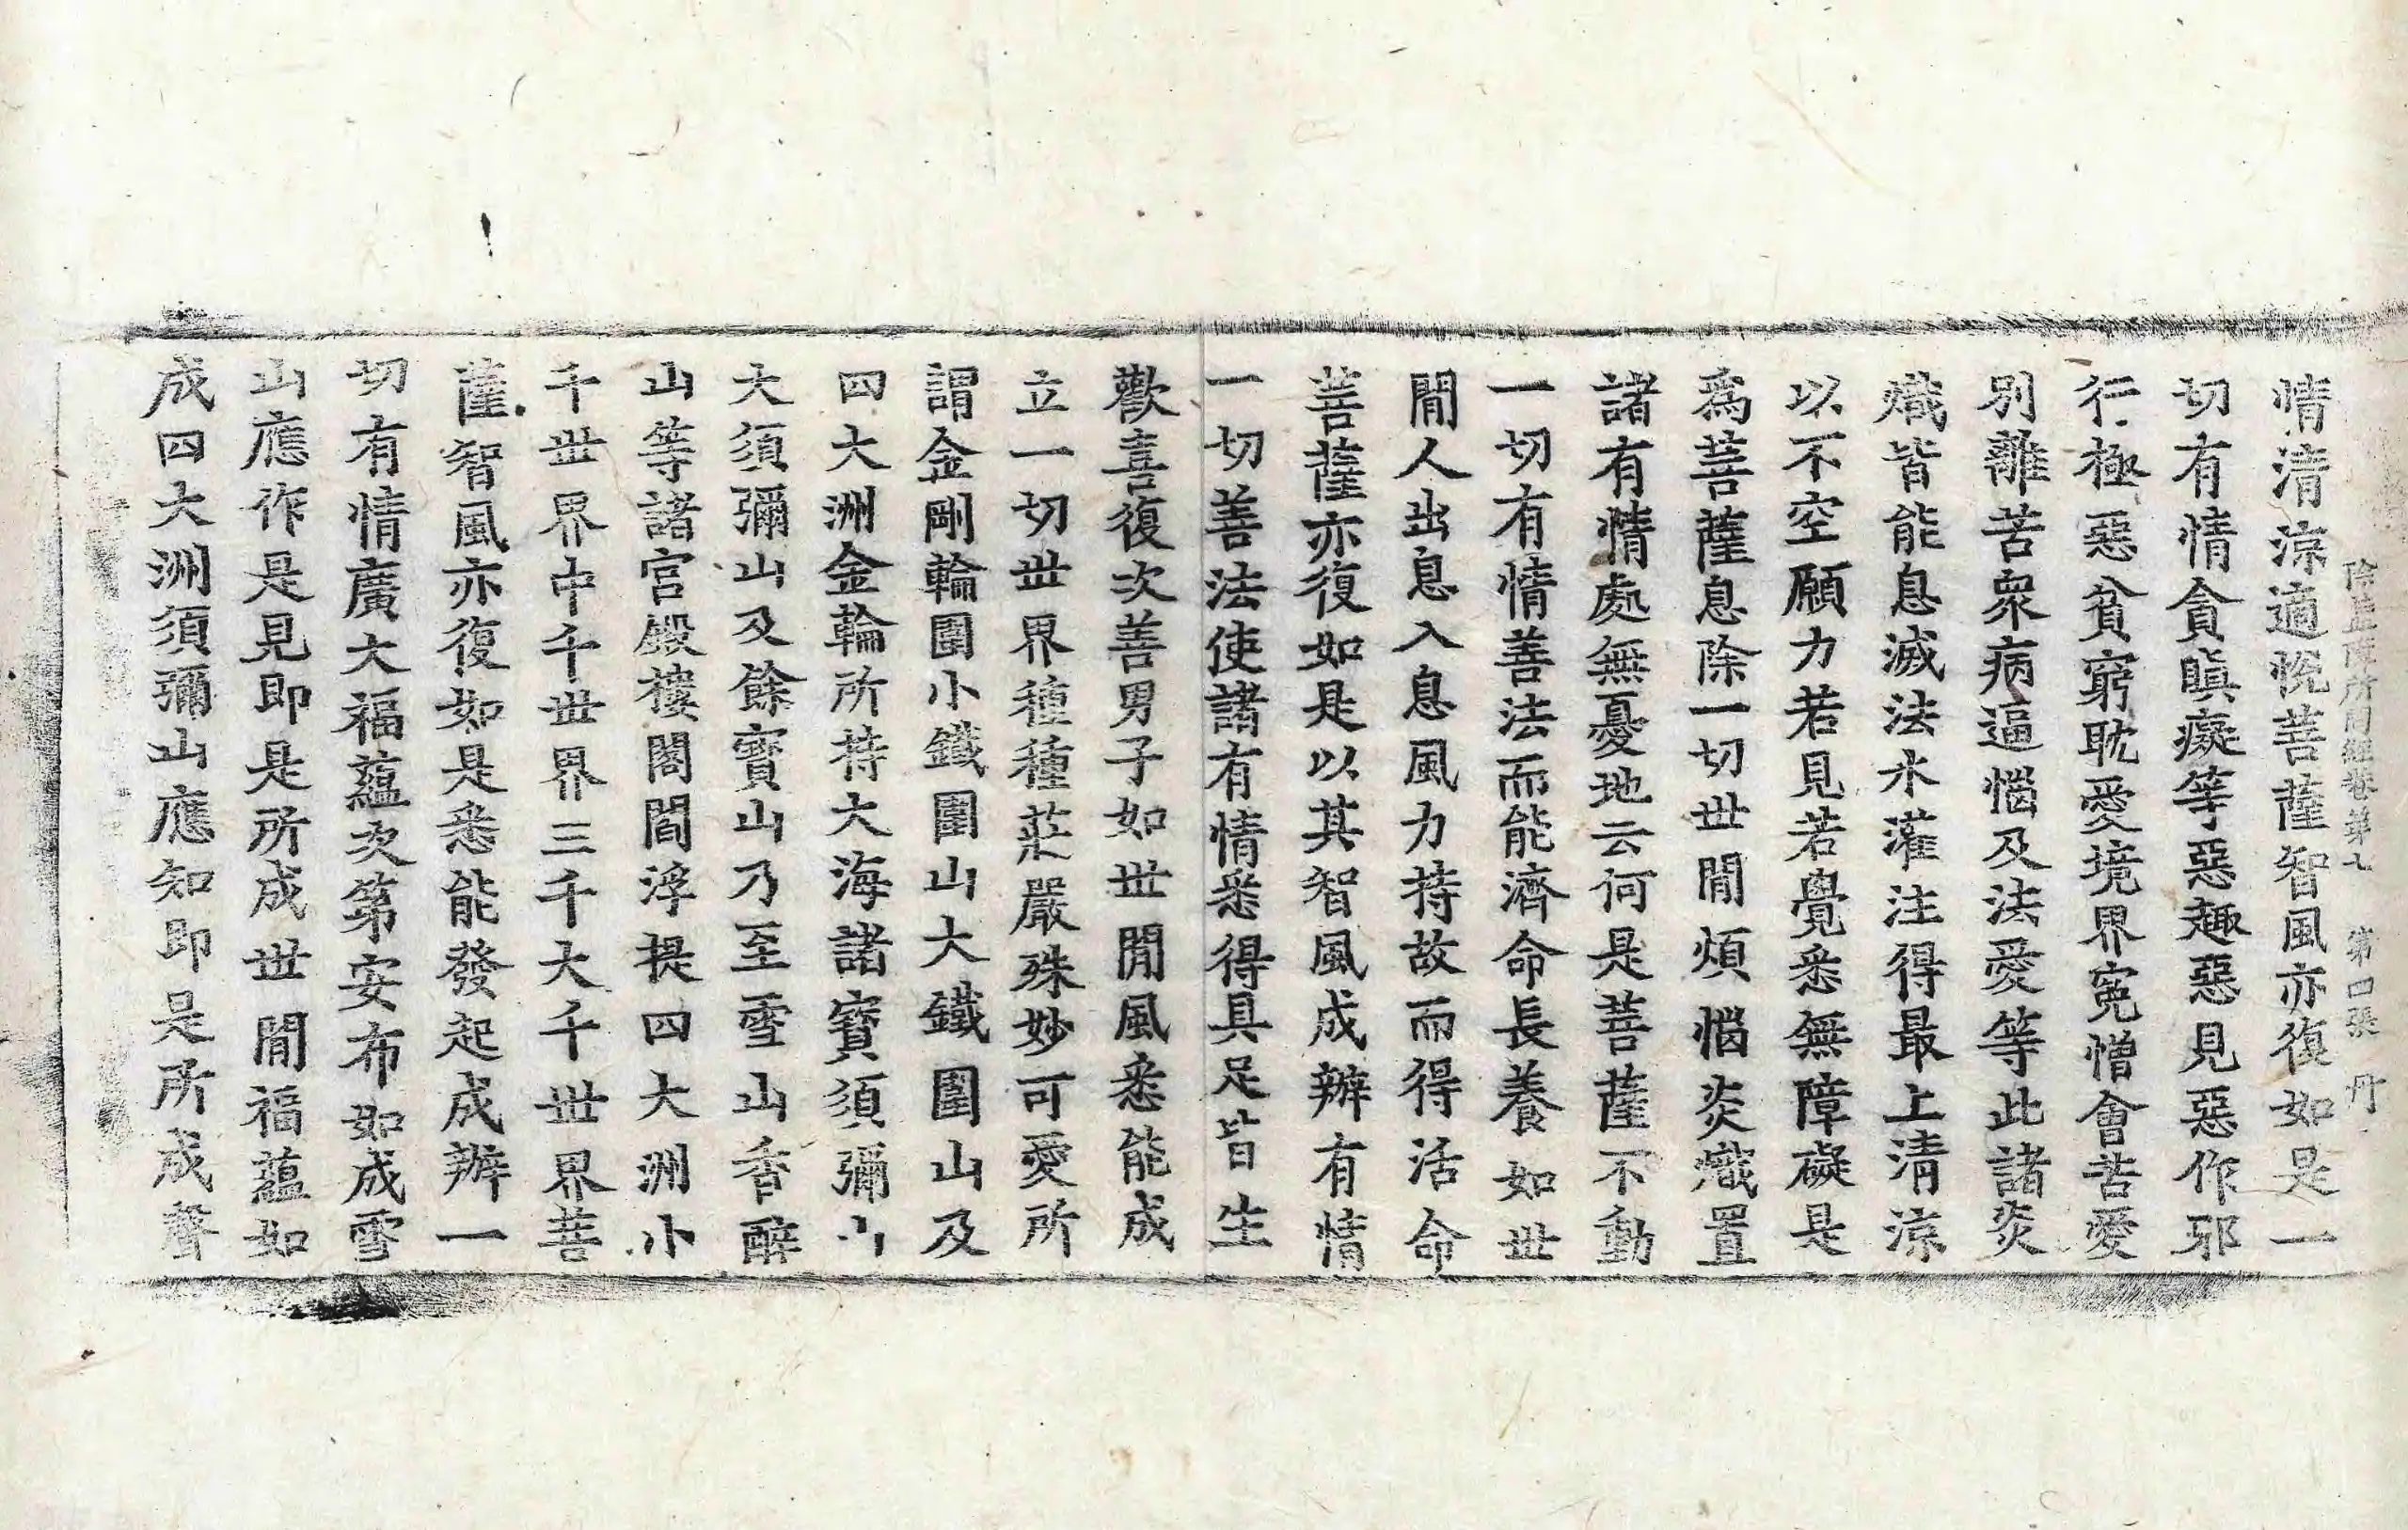 除蓋障所問經卷第七　第四張　丹
情清涼適悅菩薩智風亦復如是一
切有情貪瞋癡等惡趣惡見惡作耶
行極惡貧窮耽愛境界寃憎會苦愛
別離苦衆病逼惱及法愛等此諸炎
熾皆能息滅法水灌注得最上清涼
以不空願力若見若覺悉無障礙是
爲菩薩息除一切世閒煩惱炎熾置
諸有情處無憂地云何是菩薩不動
一切有情善法而能濟命長養如世
閒人出息入息風力持故而得活命
菩薩亦復如是以其智風成辦有情
一切善法使諸有情悉得具足皆生
歡喜復次善男子如世閒風悉能成
立一切世界種種莊嚴殊妙可愛所
謂金剛輪圍小鐵圍山大鐵圍山及
四大洲金輪所持大海諸寶須彌山
大須彌山及餘寶山乃至雪山香醉
山等諸宮殿樓閣閻浮提四大洲小
千世界中千世界三千大千世界菩
薩智風亦復如是悉能發起成辦一
切有情廣大福蘊次第安布如成雪
山應作是見即是所成世閒福蘊如
成四大洲須彌山應知即是所成聲